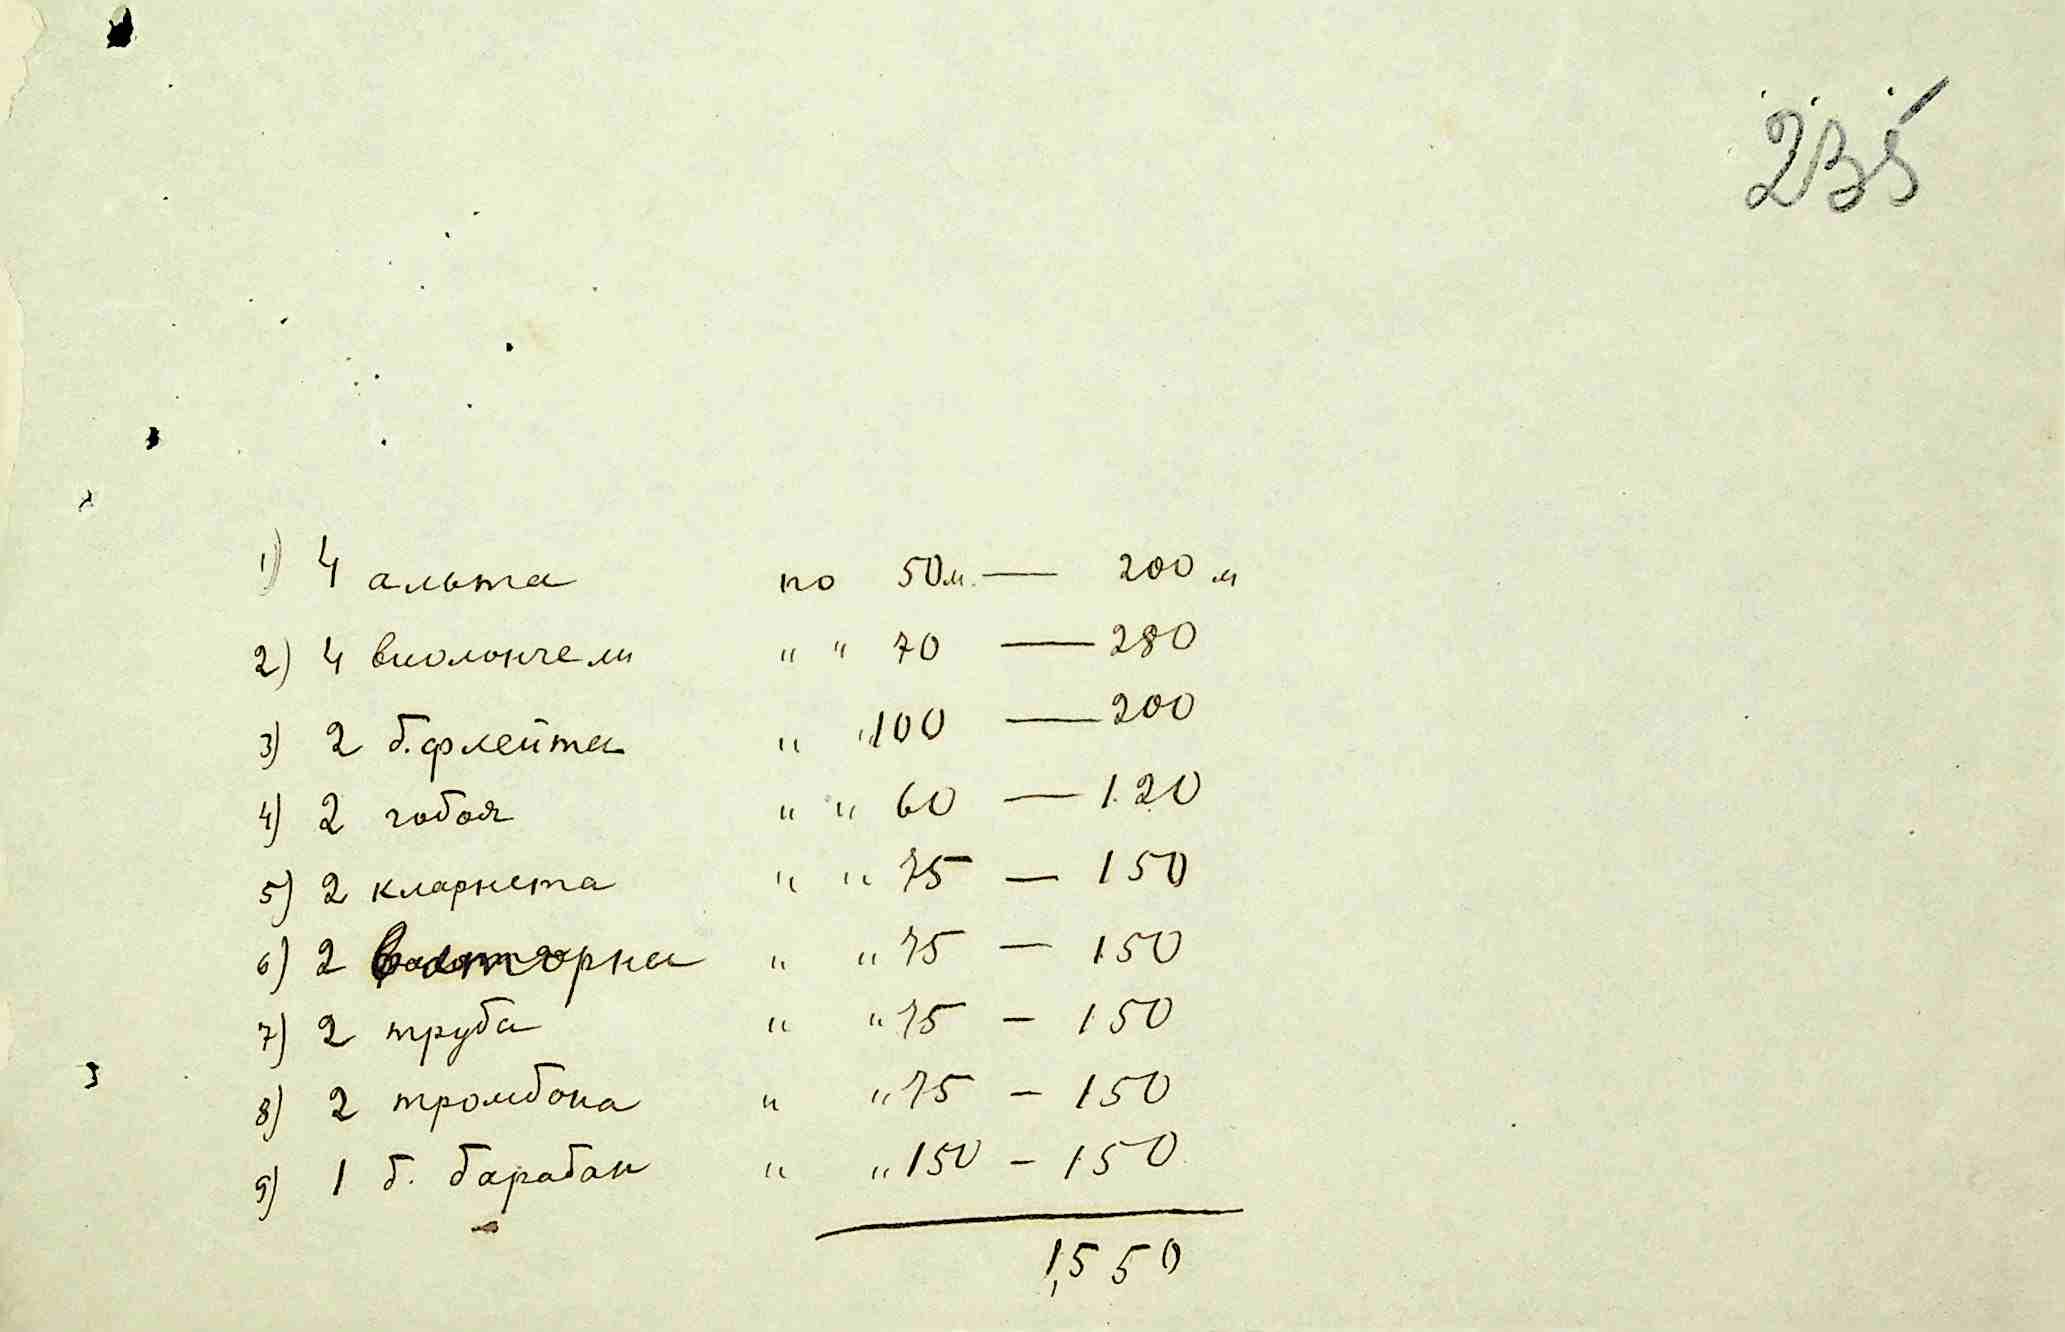 235
1) 4 альта по 50 м. — 200 м
2) 4 виолончели " " 70 — 280
3) 2 б. флейта " " 100 — 200
4) 2 гобоя " " 60 — 120
5) 2 кларнета " " 75 — 150
6) 2 валторна " " 75 — 150
7) 2 труба " " 75 — 150
8) 2 тромбона " " 75 — 150
9) 1 б. барабан " " 150 — 150
1,550